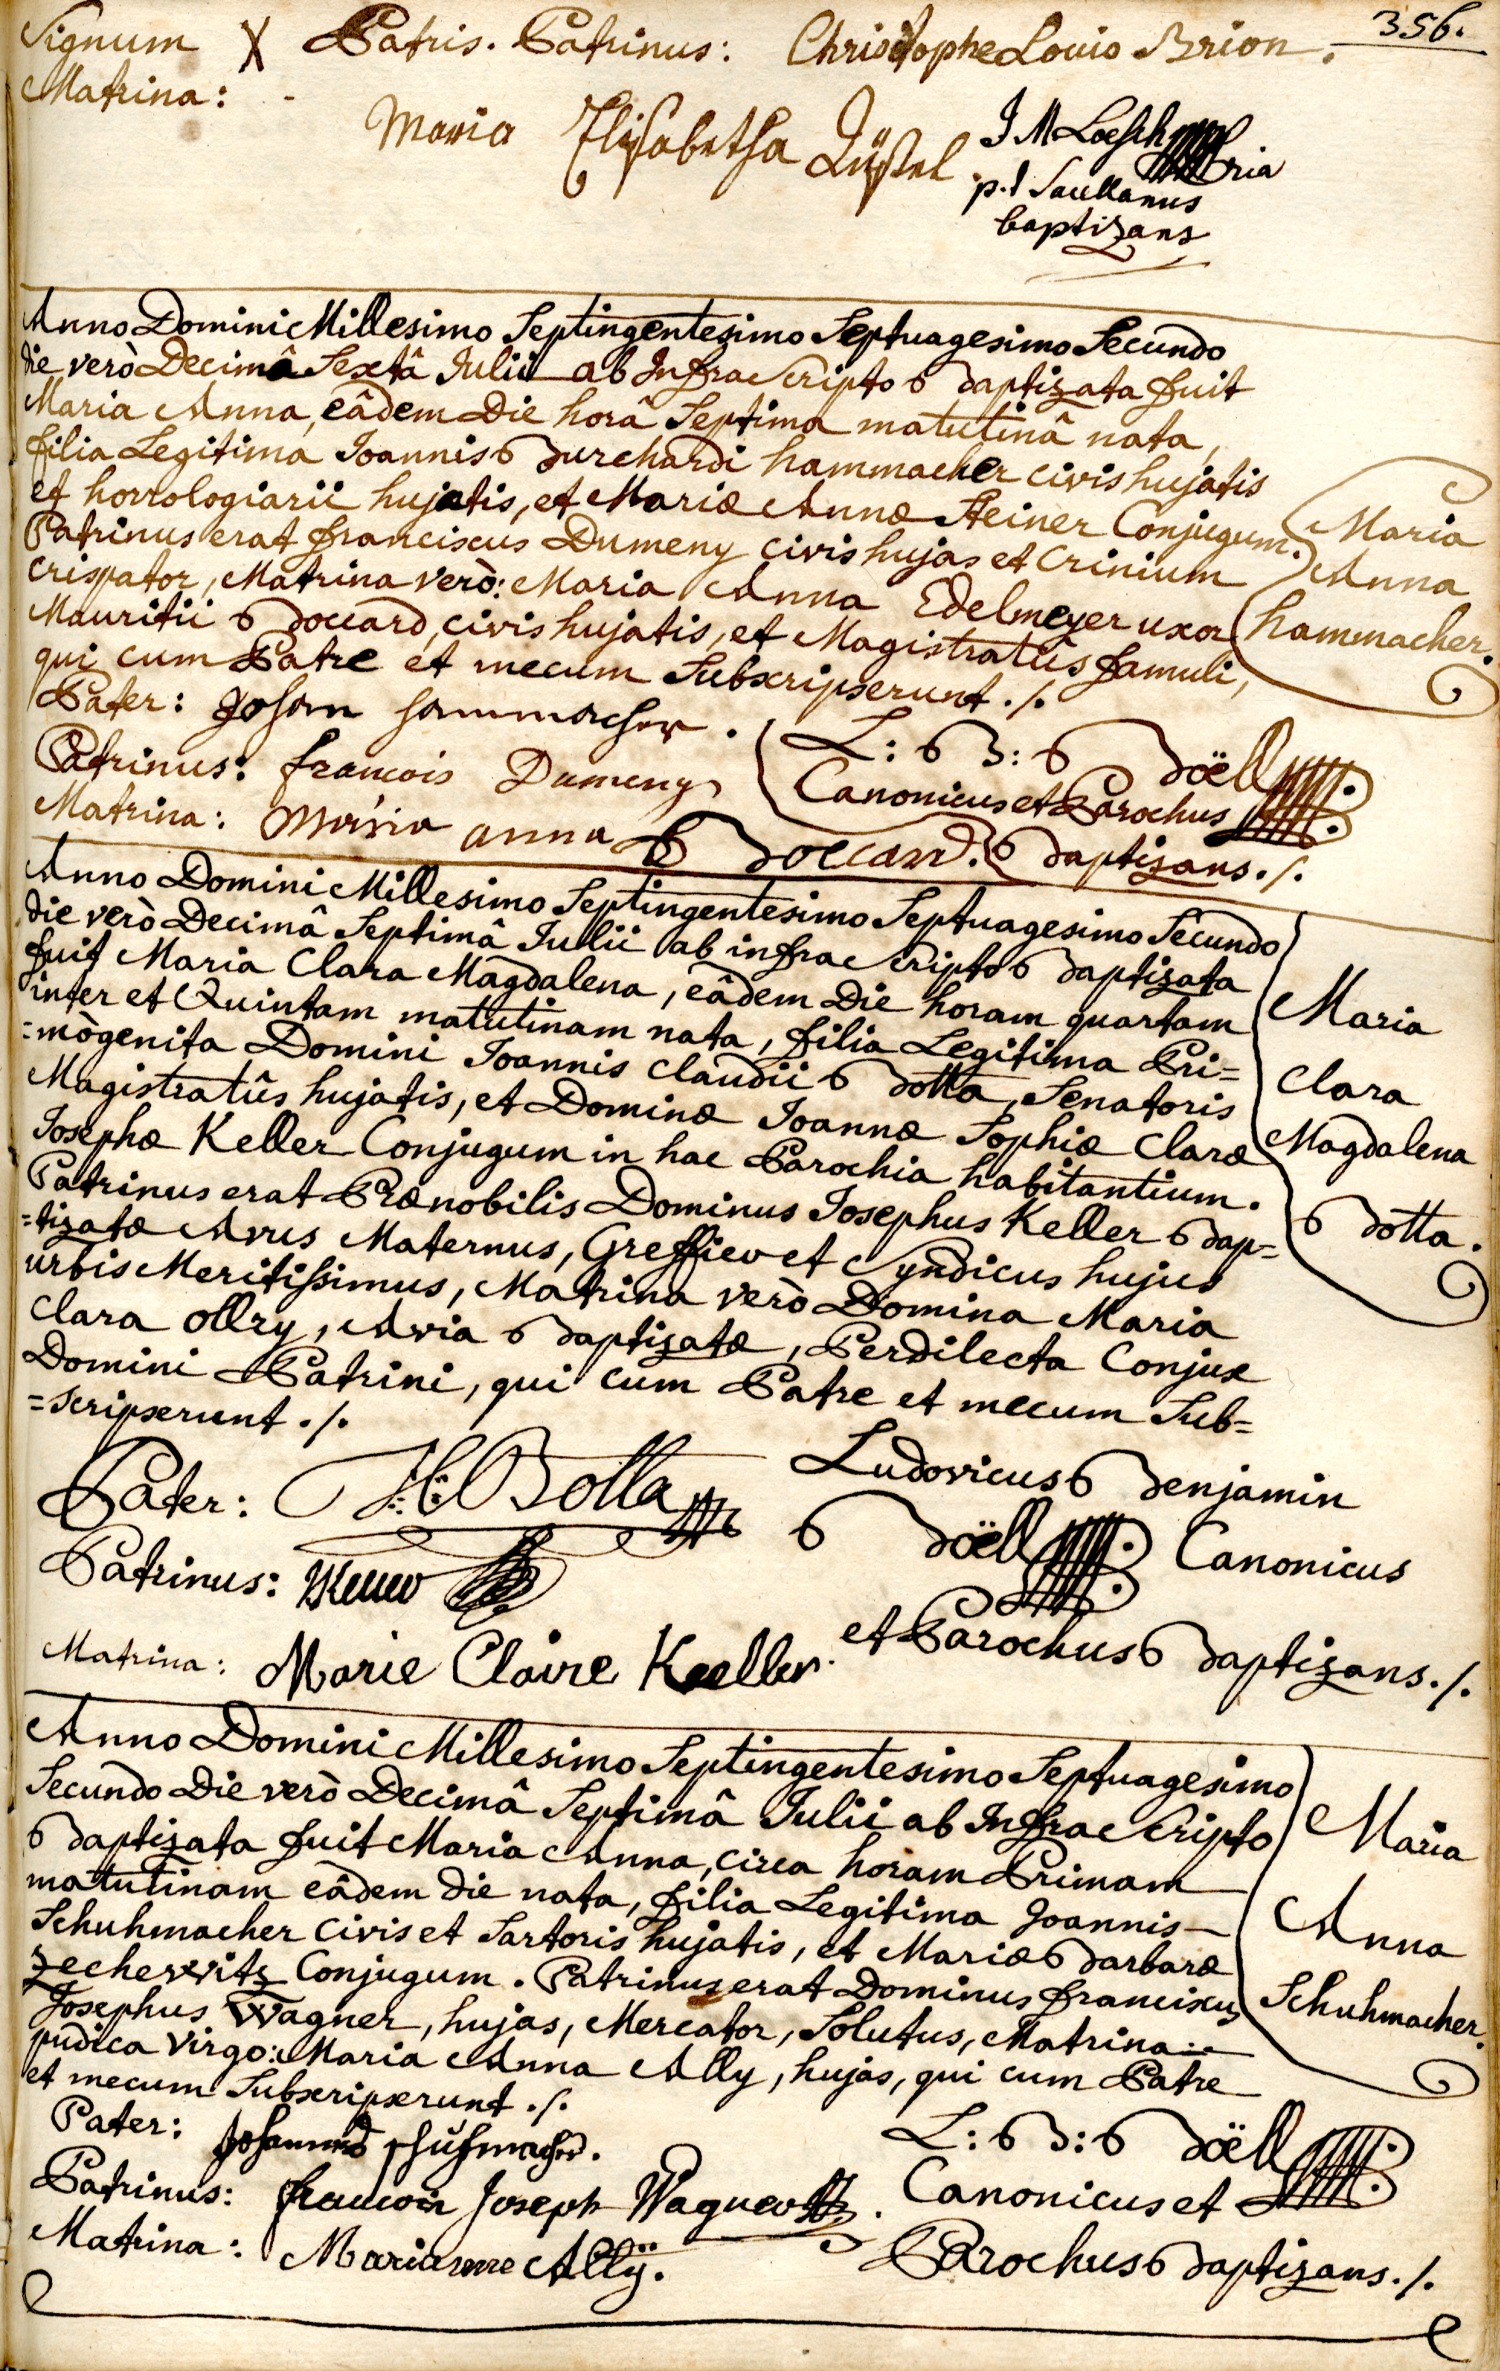 356.
Signum X Patris. Patrinus: Christophe Louis Brion.
Matrina:
Maria Elisabetha
J M Loesch
p.t Sacellanus
baptizans
Anno Domini Millesimo Septingentesimo Septuagesimo Secundo
die verò Decimâ Sextâ Julii ab Infra Scripto Baptizata fuit
Maria Anna, eâdem Die horâ Septima matutinâ nata,
filia Legitima Joannis Burchardi hammacher civis hujatis
et horrologiarii hujatis, et Mariæ Annæ Steiner Conjugum.
Patrinus erat franciscus Dumeny civis hujas et Crinium
Crispator, Matrina verò: Maria Anna Edelmeyer uxor
Mauritii Boccard, civis hujatis, et Magistratûs famuli,
qui cum Patre et mecum Subscripserunt ./.
Maria
Anna
hammacher.
Pater: Johan hammacher.
Patrinus: francois Dumeny
Matrina: Maria anna Boccard.
L: B: Boëll
Canonicus et Parochus
Baptizans ./.
Anno Domini Millesimo Septingentesimo Septuagesimo Secundo
die verò Decimâ Septimâ Julii ab infra Scripto Baptizata
fuit Maria Clara Magdalena, eâdem Die horam quartam
inter et Quintam matutinam nata, filia Legitima Pri=
=mògenita Domini Joannis Claudii Botta, Senatoris
Magistratûs hujatis, et Dominæ Joannæ Sophiæ Claræ
Josephæ Keller Conjugum in hac Parochia habitantium.
Patrinus erat Prænobilis Dominus Josephus Keller Bap=
=tizatæ Avus Maternus, Greffier et Syndicus hujus
urbis Meritissimus, Matrina verò Domina Maria
Clara Ollry, Avia Baptizatæ, Perdilecta Conjux
Domini Patrini, qui cum Patre et mecum Sub=
=scripserunt ./.
Maria
Clara
Magdalena
Botta.
Pater: Botta
Patrinus: Keller
Matrina: Marie Claire Keeller.
Ludovicus Benjamin
Boëll Canonicus
et Parochus Baptizans ./.
Anno Domini Millesimo Septingentesimo Septuagesimo
Secundo Die verò Decimâ Septimâ Julii ab Infra Scripto
Baptizata fuit Maria Anna, circa horam Primam
matutinam eâdem die nata, filia Legitima Joannis
Schuhmacher Civis et Sartoris hujatis, et Mariæ Barbaræ
Zecherwitz Conjugum. Patrinus erat Dominus franciscus
Josephus Wagner, hujas, Mercator, Solutus, Matrina
pudica Virgo: Maria Anna Ally, hujas, qui cum Patre
et mecum Subscripserunt ./.
Maria
Anna
Schuhmacher.
Pater: Johannes schuhmacher.
Patrinus: francois Joseph Wagner.
Matrina: Marianne Allÿ.
L: B: Boëll
Canonicus et
Parochus Baptizans ./.